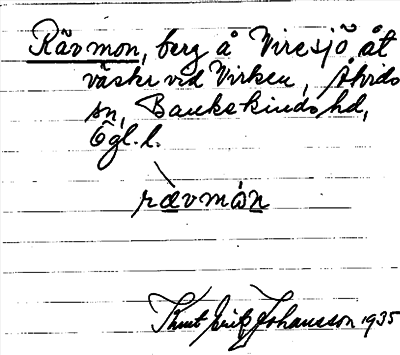 Rävmon, berg å Viresjö åt
väster vid Virken, Åtvids
sn, Bankekinds hd,
Ögl. l.
rævmón
Knut Fritz Johansson 1935